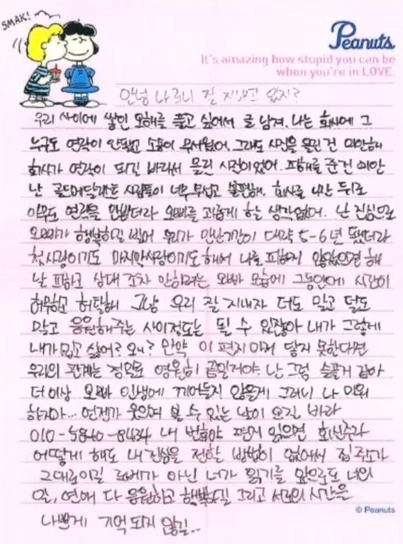 SMAK!
Peanuts
It's amazing how stupid you can be
when you're in LOVE.
안녕 나르니 잘 지내고 있지?
우리 사이에 쌓인 오해를 풀고 싶어서 글 남겨. 나는 회사에 그
누구도 연락이 안되고 소표이 무서웠어. 그래도 사진을 올린 건 미안해
회사가 연락이 되길 바라서 올린 사진이었어. 피해를 준건 미안
난 골드메달리스트 사람들이 너무 무섭고 불편해. 회사를 나간 뒤로
아무도 연락을 안받더라 오빠를 괴롭게 할 생각없어. 난 진심으로
오빠가 행복하길 빌어 우리가 만난기간이 대략 5-6년 됐더라
첫사랑이기도 마지막사랑이기도 해서 나를 피하지 않았으면 해
날 피하고 상대 조차 안하려는 오빠 모습에 그동안에 시간이
허무하고 허탈해 그냥 우리 잘 지내자 더도 말고 덜도
말고 응원해주는 사이정도는 될 수 있잖아 내가 그렇게
내가 밉고 싫어? 왜? 만약 이 편지마저 닿지 못한다면
우리의 관계는 정말로 영원히 끝일거야 난 그럼 슬플거 같아
더 이상 오빠 인생에 끼어들지 않을게 그러니 나 미워
하지마... 언젠가 웃으며 볼 수 있는 날이 오길 바라
010-5840-8434 내 번호야 편지 읽으면 회신줘라
어떻게 해도 내 진심을 전할 방법이 없어서 집주소가
그대로이길 로베가 아닌 너가 읽기를 앞으로도 너의
일, 연애 다 응원하고 행복하길 그리고 서로의 시간은
나쁘게 기억되지 않길...
© Peanuts